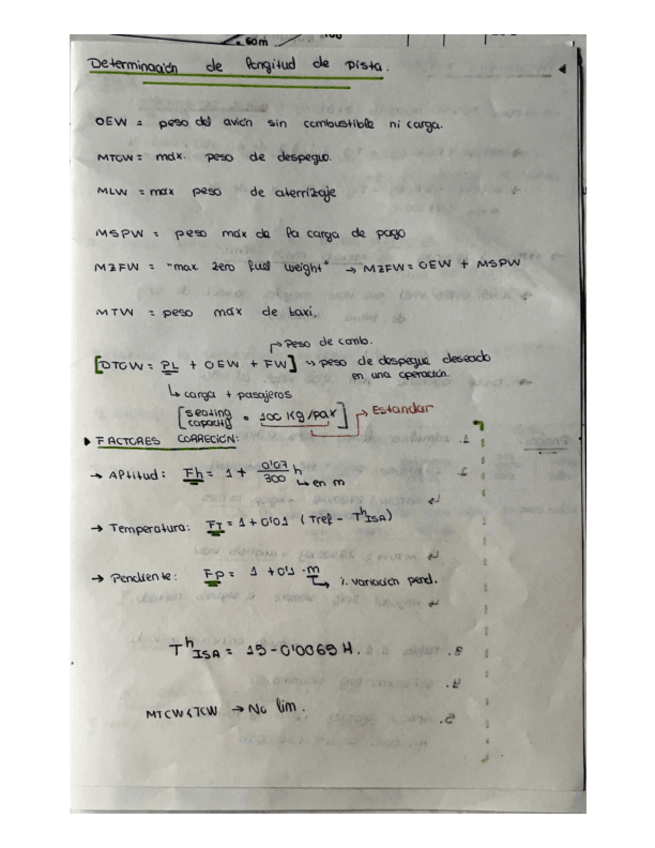 Determinación de longitud de pista.
OEW = peso del avión sin combustible ni carga.
MTOW = máx. peso de despegue.
MLW = max peso de aterrizaje
MSPW = peso máx de la carga de pago
MZFW = "max zero fuel weight" → MZFW = OEW + MSPW
MTW = peso max de taxi.
→ Peso de comb.
[DTOW = PL + OEW + FW] → peso de despegue deseado
en una operación.
↳ carga + pasajeros
[seating capacity • 100 Kg/pax] → Estandar
▸ FACTORES CORRECIÓN:
→ Altitud: Fh = 1 + 0'07/300 h
↳ en m
→ Temperatura: FT = 1 + 0'01 (Tref - T^h ISA)
→ Pendiente: FP = 1 + 0'1 · m
↳ % variación pend.
T^h ISA = 15 - 0'0065 H.
MTOW < TOW → No lim.